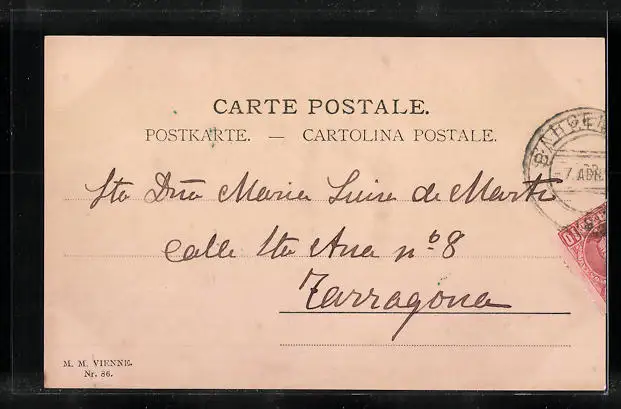 CARTE POSTALE.
POSTKARTE. — CARTOLINA POSTALE.
Sta Dña Maria Luisa de Marti
Calle Sta Ana nº 8
Tarragona
M. M. VIENNE.
Nr. 86.
BARCEL
7 ABR
10